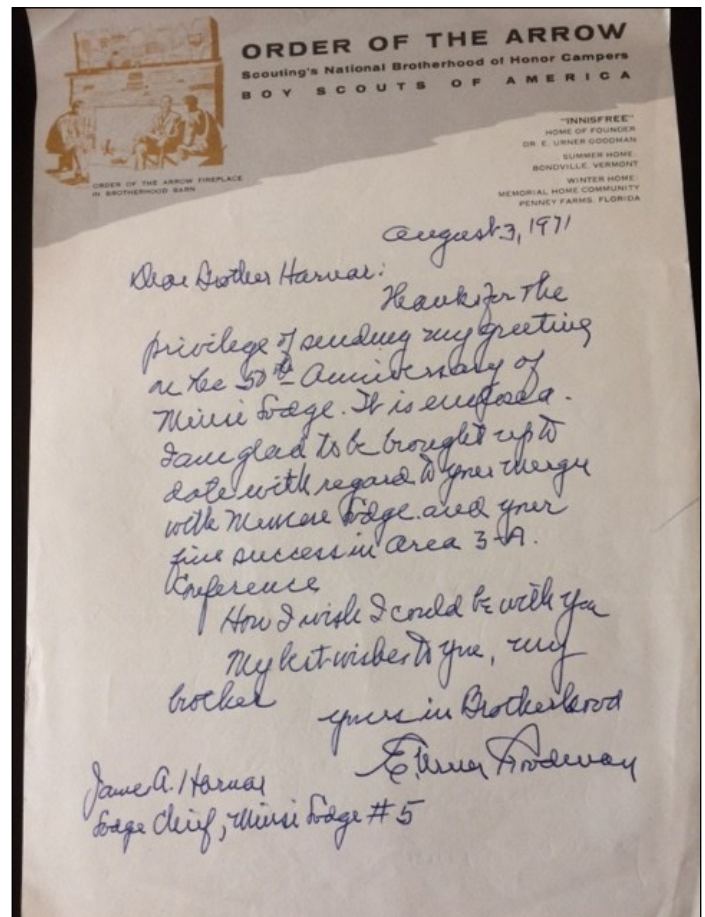 ORDER OF THE ARROW
Scouting's National Brotherhood of Honor Campers
BOY SCOUTS OF AMERICA
"INNISFREE"
HOME OF FOUNDER
DR. E. URNER GOODMAN
SUMMER HOME:
BONDVILLE, VERMONT
WINTER HOME:
MEMORIAL HOME COMMUNITY
PENNEY FARMS, FLORIDA
ORDER OF THE ARROW FIREPLACE
IN BROTHERHOOD BARN
August 3, 1971
Dear Brother Harvar:
Thanks for the
privilege of sending my greeting
on the 50th Anniversary of
Minsi Lodge. It is enclosed.
I am glad to be brought up to
date with regard to your merger
with Memeu Lodge and your
fine success in Area 3-A.
Conference
How I wish I could be with you
My best wishes to you, my
brother
yours in Brotherhood
E. Urner Goodman
James A. Harvar
Lodge Chief, Minsi Lodge #5